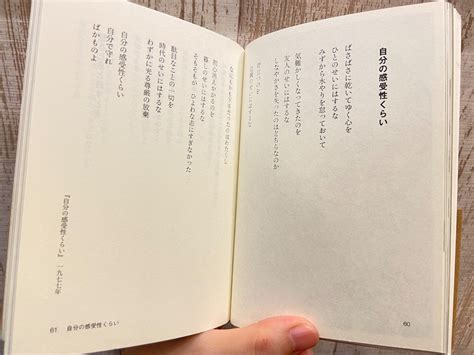 自分の感受性くらい
ぱさぱさに乾いてゆく心を
ひとのせいにはするな
みずから水やりを怠っておいて
気難かしくなってきたのを
友人のせいにはするな
しなやかさを失ったのはどちらなのか
苛立つのを
近親のせいにはするな
60
なにもかも下手だったのはわたくし
初心消えかかるのを
暮しのせいにはするな
そもそもが ひよわな志にすぎなかった
駄目なことの一切を
時代のせいにはするな
わずかに光る尊厳の放棄
自分の感受性くらい
自分で守れ
ばかものよ
『自分の感受性くらい』一九七七年
61 自分の感受性くらい